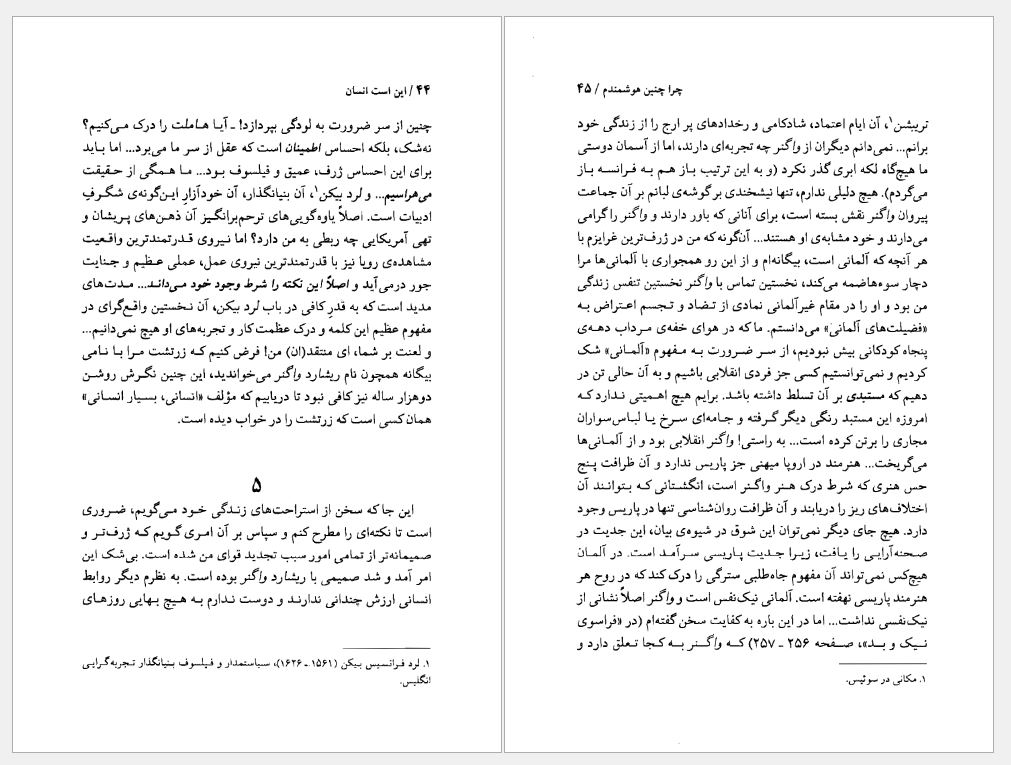 ۴۴ / این است انسان
چنین از سر ضرورت به لودگی بپردازد! ـ آیا هاملت را درک می‌کنیم؟
نه‌شک، بلکه احساس اطمینان است که عقل از سر ما می‌برد... اما باید
برای این احساس ژرف، عمیق و فیلسوف بود... ما همگی از حقیقت
می‌هراسیم... و لرد بیکن۱، آن بنیانگذار، آن خودآزارِ این‌گونه‌ی شگرفِ
ادبیات است. اصلاً یاوه‌گویی‌های ترحم‌برانگیز آن ذهن‌های پریشان و
تهی آمریکایی چه ربطی به من دارد؟ اما نیروی قدرتمندترین واقعیت
مشاهده‌ی رویا نیز با قدرتمندترین نیروی عمل، عملی عظیم و جنایت
جور درمی‌آید و اصلاً این نکته را شرط وجود خود می‌داند... مدت‌های
مدید است که به قدرِ کافی در باب لرد بیکن، آن نخستین واقع‌گرای در
مفهوم عظیم این کلمه و درک عظمت کار و تجربه‌های او هیچ نمی‌دانیم...
و لعنت بر شما، ای منتقد(ان) من! فرض کنیم که زرتشت مرا با نامی
بیگانه همچون نام ریشارد واگنر می‌خواندید، این چنین نگرش روشن
دوهزار ساله نیز کافی نبود تا دریابیم که مؤلف «انسانی، بسیار انسانی»
همان کسی است که زرتشت را در خواب دیده است.
۵
این جا که سخن از استراحت‌های زندگی خود می‌گویم، ضروری
است تا نکته‌ای را مطرح کنم و سپاس بر آن امری گویم که ژرف‌تر و
صمیمانه‌تر از تمامی امور سبب تجدید قوای من شده است. بی‌شک این
امر آمد و شد صمیمی با ریشارد واگنر بوده است. به نظرم دیگر روابط
انسانی ارزش چندانی ندارند و دوست ندارم به هیچ بهایی روزهای
۱. لرد فرانسیس بیکن (۱۵۶۱ ـ ۱۶۲۶)، سیاستمدار و فیلسوف بنیانگذار تجربه‌گرایی
انگلیس.
چرا چنین هوشمندم / ۴۵
تریبشن۱، آن ایام اعتماد، شادکامی و رخدادهای پر ارج را از زندگی خود
برانم... نمی‌دانم دیگران از واگنر چه تجربه‌ای دارند، اما از آسمان دوستی
ما هیچ‌گاه لکه ابری گذر نکرد (و به این ترتیب باز هم به فرانسه باز
می‌گردم). هیچ دلیلی ندارم، تنها نیشخندی بر گوشه‌ی لبانم بر آن جماعت
پیروان واگنر نقش بسته است، برای آنانی که باور دارند و واگنر را گرامی
می‌دارند و خود مشابه‌ی او هستند... آن‌گونه که من در ژرف‌ترین غرایزم با
هر آنچه که آلمانی است، بیگانه‌ام و از این رو همجواری با آلمانی‌ها مرا
دچار سوءهاضمه می‌کند، نخستین تماس با واگنر نخستین تنفس زندگی
من بود و او را در مقام غیرآلمانی نمادی از تضاد و تجسم اعتراض به
«فضیلت‌های آلمانی» می‌دانستم. ما که در هوای خفه‌ی مرداب دهه‌ی
پنجاه کودکانی بیش نبودیم، از سر ضرورت به مفهوم «آلمانی» شک
کردیم و نمی‌توانستیم کسی جز فردی انقلابی باشیم و به آن حالی تن در
دهیم که مستبدی بر آن تسلط داشته باشد. برایم هیچ اهمیتی ندارد که
امروزه این مستبد رنگی دیگر گرفته و جامه‌ای سرخ یا لباس سواران
مجاری را برتن کرده است... به راستی! واگنر انقلابی بود و از آلمانی‌ها
می‌گریخت... هنرمند در اروپا میهنی جز پاریس ندارد و آن ظرافت پنج
حس هنری که شرط درک هنر واگنر است، انگشتانی که بتوانند آن
اختلاف‌های ریز را دریابند و آن ظرافت روان‌شناسی تنها در پاریس وجود
دارد. هیچ جای دیگر نمی‌توان این شوق در شیوه‌ی بیان، این جدیت در
صحنه‌آرایی را یافت، زیرا جدیت پاریسی سرآمد است. در آلمان
هیچ‌کس نمی‌تواند آن مفهوم جاه‌طلبی سترگی را درک کند که در روح هر
هنرمند پاریسی نهفته است. آلمانی نیک‌نفس است و واگنر اصلاً نشانی از
نیک‌نفسی نداشت... اما در این باره به کفایت سخن گفته‌ام (در «فراسوی
نیک و بد»، صفحه ۲۵۶ ـ ۲۵۷) که واگنر به کجا تعلق دارد و
۱. مکانی در سوئیس.